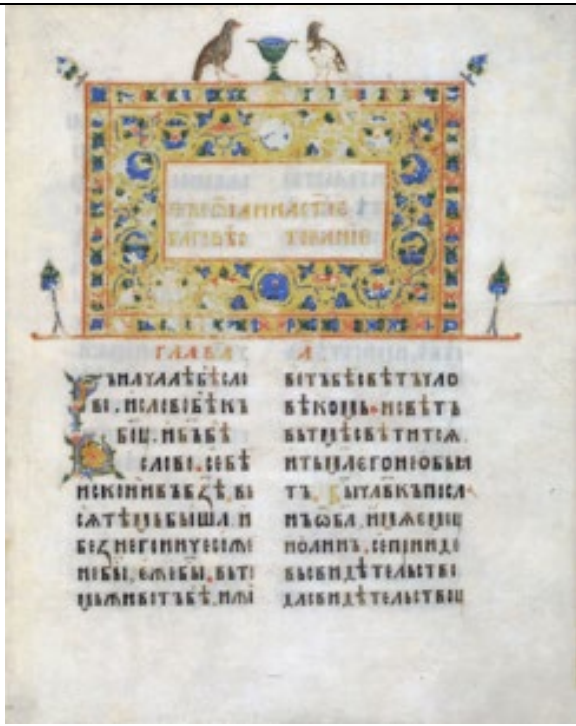 ГЛАВА А
Въначалѣбѣсло
во. исловобѣкъ
бꙋ. ибъбѣ
слово. себѣ
исконикъбꙃѣ. вь
сѧтѣмьбышѧ. и
безнегоничесоже
небы, ежебы. вьто
мьживотъбѣ. ижи
вотъбѣсвѣтъчло
вѣкомъ. исвѣтъ
вьтмѣсвѣтитсѧ.
итьмаегонеобьѧ
тъ. Бычлвкъпосла
нъѿба. имѧемꙋ
иоаннъ. сеприиде
въсвидѣтельство
дасвидѣтельствꙋ